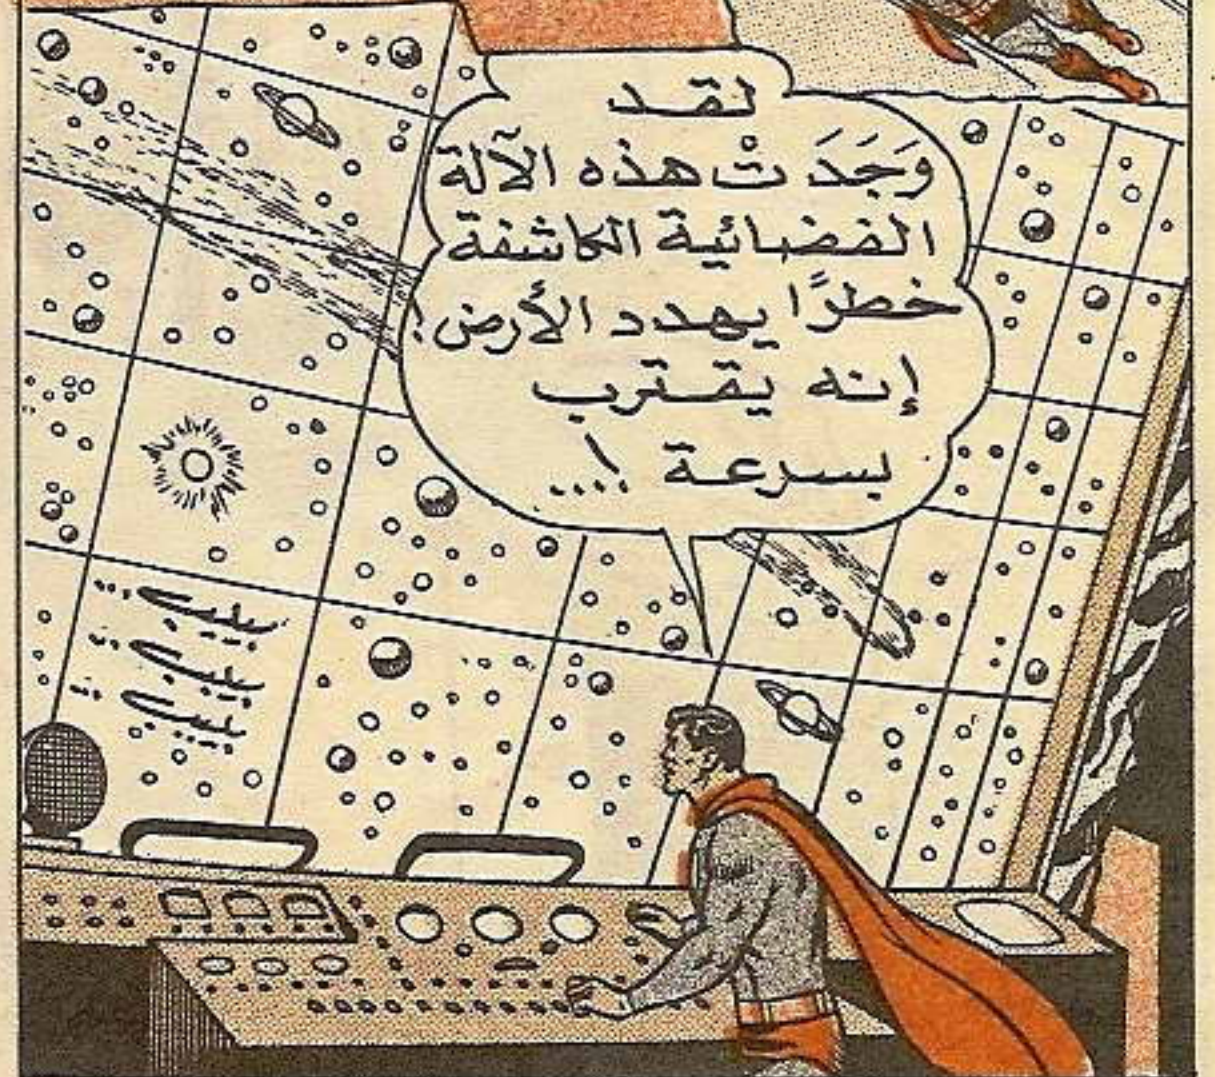 لقد
وَجَدَتْ هذه الآلة
الفضائية الكاشفة
خطرًا يهدد الأرض!
إنه يقترب
بسرعة !....
بليب...
بليب...
بليب...